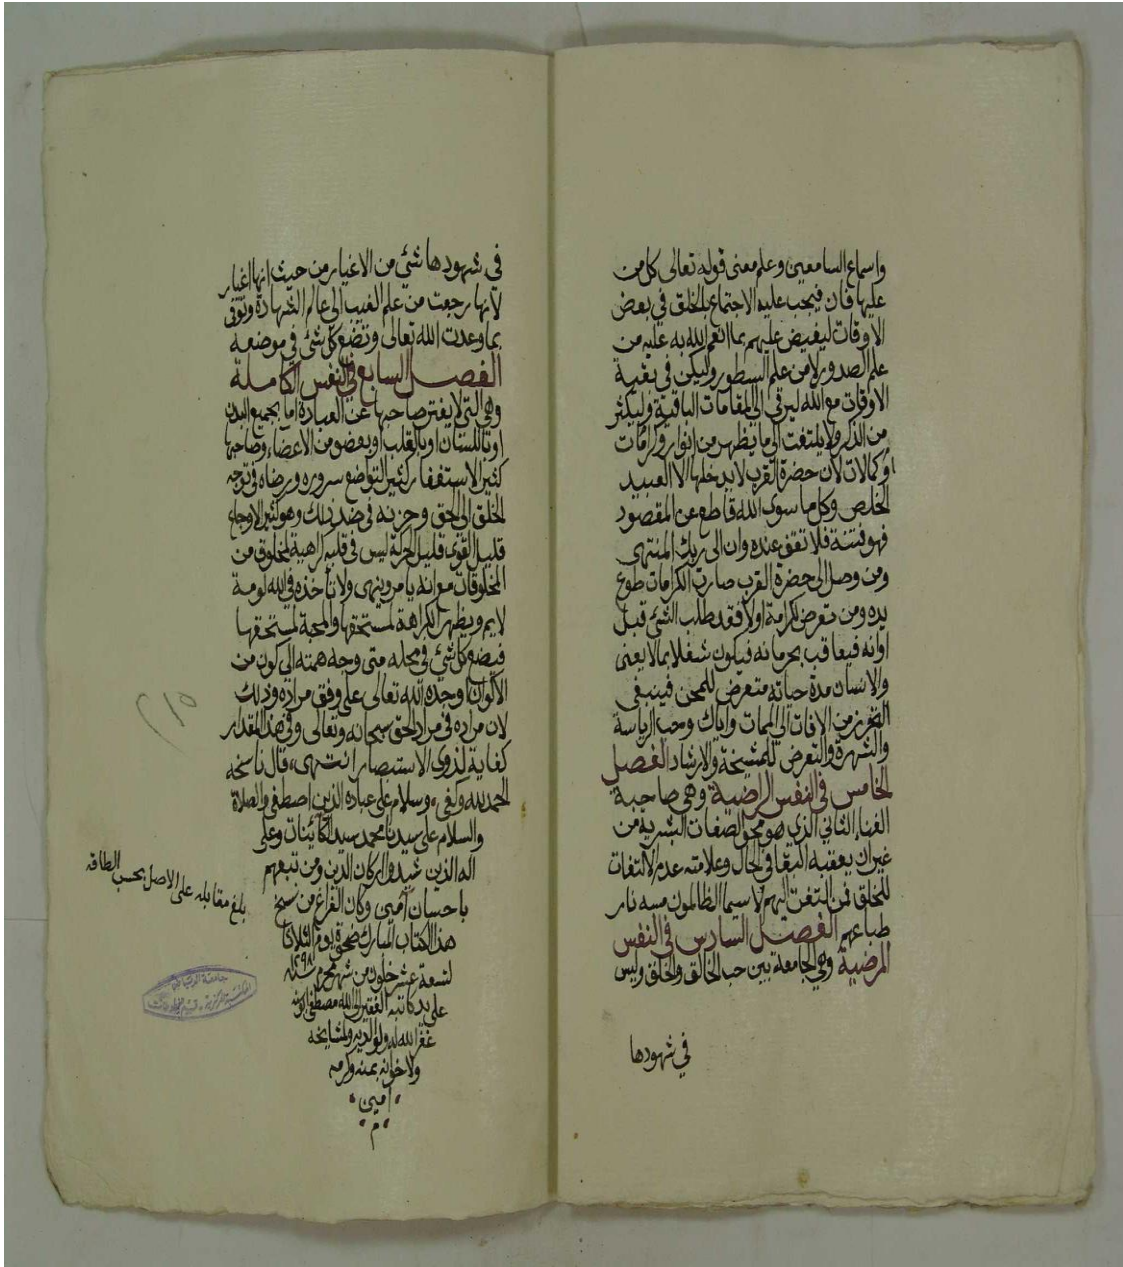 واسماع السامعين وعلم معنى قوله تعالى كل من
عليها فان فيجب عليه الاجتماع بالخلق في بعض
الاوقات ليفيض عليهم بما انعم الله به عليه من
علم الصدور لا من علم السطور وليكن في بقية
الاوقات مع الله ليرقى الى المقامات الباقية وليكثر
من الذكر ولا يلتفت الى ما يظهر من انوار وكرامات
او كمالات لان حضرة القرب لا يدخلها الا العبيد
الخلص وكل ما سوى الله قاطع عن المقصود
فهو فتنة فلا تقف عنده وان الى ربك المنتهى
ومن وصل الى حضرة القرب صارت الكرامات طوع
يده ومن تعرض لكرامة اولا فقد طلب الشئ قبل
اوانه فيعاقب بحرمانه فيكون شغلا بما لا يعنى
والانسان مدة حياته متعرض للمحن فينبغى
التحرز من الافات الى الممات واياك وحب الرياسة
والشهرة والتعرض للمشيخة والارشاد الفصل
الخامس في النفس الراضية وهي صاحبة
الفناء الثاني الذي هو محو الصفات البشرية من
غير ان يعقبه البقا في الحال وعلامته عدم الالتفات
للخلق فمن التفت اليهم لا سيما الظالمون مسه نار
طباعهم الفصل السادس في النفس
المرضية وهي الجامعة بين حب الخالق والخلق وليس
في شهودها
في شهودها شئ من الاغيار من حيث انها اغيار
لانها رجعت من علم الغيب الى عالم الشهادة وتوفى
بما وعدت الله تعالى وتضع كل شئ في موضعه
الفصل السابع في النفس الكاملة
وهي التي لا يفتر صاحبها عن العبادة اما بجميع البدن
او باللسان او بالقلب او بعضو من الاعضاء وصاحبها
كثير الاستغفار كثير التواضع سروره ورضاه في توجه
الخلق الى الحق وحزنه في ضد ذلك وهو كثير الاوجاع
قليل القوى قليل الحركة ليس في قلبه كراهية لمخلوق من
المخلوقات مع انه يامر وينهى ولا تاخذه في الله لومة
لايم ويظهر الكراهة لمستحقها والمحبة لمستحقها
فيضع كل شئ في محله متى وجه همته الى كون من
الاكوان اوجده الله تعالى على وفق مراده وذلك
لان مراده في مراد الحق سبحانه وتعالى وفي هذا المقدار
كفاية لذوي الاستبصار انتهى، قال ناسخه
الحمد لله وكفى، وسلام على عباده الذين اصطفى والصلاة
والسلام على سيدنا محمد سيد الكائينات وعلى
اله الذين شيدوا اركان الدين ومن تبعهم
باحسان آمين وكان الفراغ من نسخ
هذا الكتاب المبارك ضحوة يوم الثلاثا
لتسعة عشر خلون من شهر محرم سنة ١٢٩٨
على يد كاتبه الفقير الى الله مصطفى
غفر الله له ولوالديه ولمشايخه
ولاخوانه بمنه وكرمه
امين
م
بلغ مقابله على الاصل بحسب الطاقه
جامعة الرياض